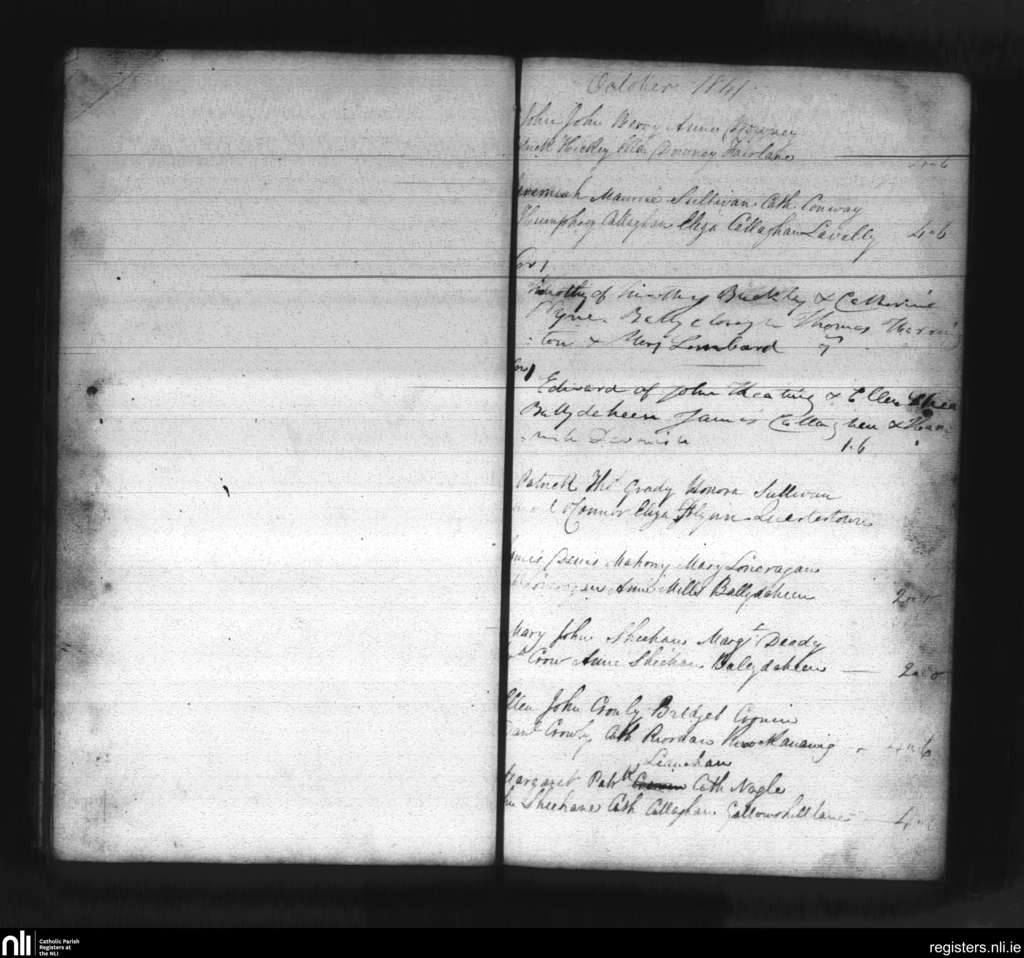 October 1841
John John Berry Anne Downey
Hickley Ellen Downey Fairlane 2 " 6
Jeremiah Maurice Sullivan Cath. Conway
Humphrey Callaghan Eliza Callaghan Lavelly 4 " 6
Timothy of Timothy Buckley & Catherine
Flyne Ballyclough Thomas Herring
: ton & Mary Lombard
Edward of John Keating & Ellen Shea
Ballydaheen James Callaghan & Han
1.6
Patrick Thos Grady Honora Sullivan
O'Connor Eliza Flynn Quartertown
Denis Mahony Mary Loneragan
Anne Mills Ballydaheen
Mary John Sheehan Margt Deady
Crow Anne Sheehan Ballydaheen
Ellen John Crowly Bridget Cronin
Danl Crowly Cath Riordan 4 " 6
Lianahan
Margaret Patk Cath Nagle
Sheehane Cath Callaghan Gallowshill lane
nli
Catholic Parish
Registers at
the NLI
registers.nli.ie